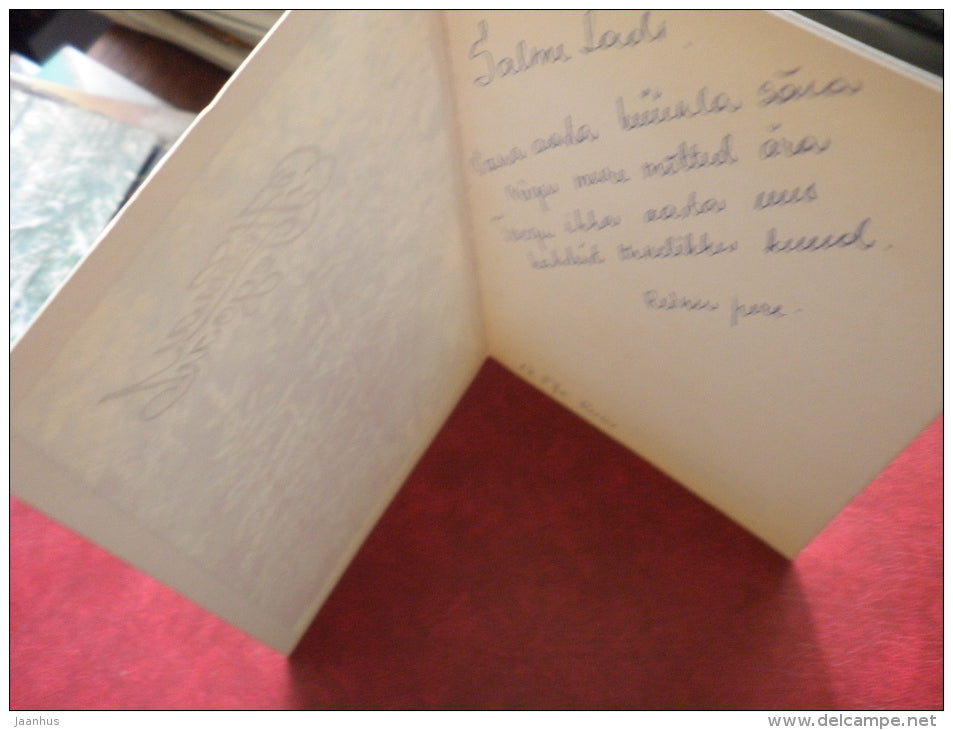 Salme Ladi
Vana aasta küünla sära
viigu mure mõtted ära
Toogu ikka aasta uus
kaksteist õnnelikku kuud.
pere.
jaanhus
www.delcampe.net